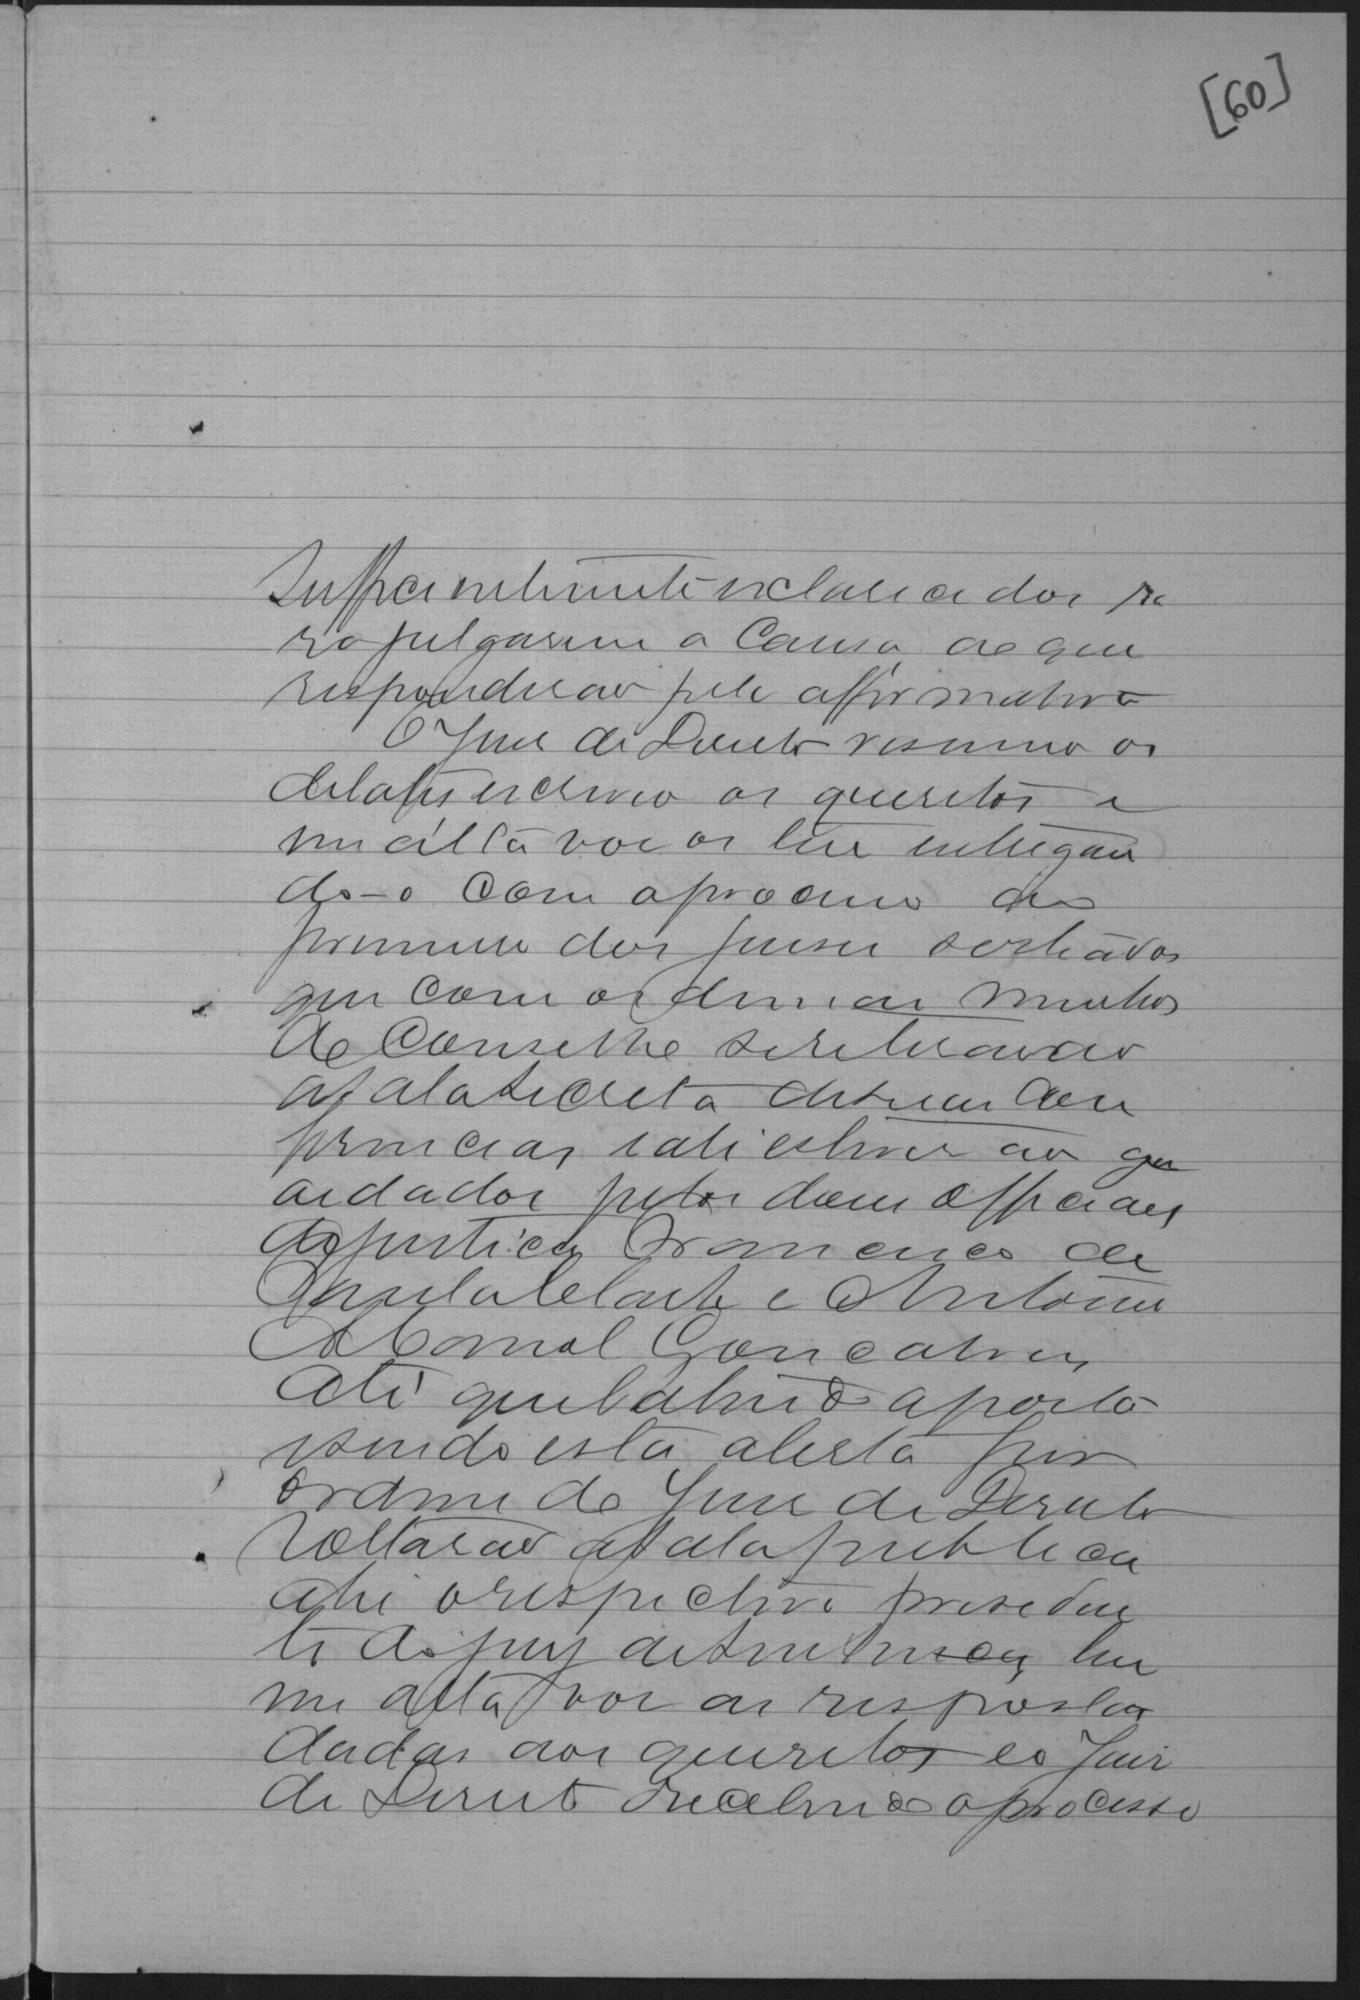 [60]
Sufficientemente esclarecidos pa
ra julgarem a causa ao que
responderão pela affirmativa
O Juiz de Direito resumio os
debates escreveo os quesitos e
em alta voz os leu entregan
do-o com o processo ao
primeiro dos juises sorteados
que com os demais membros
do Conselho se retirarão
a sala secreta de suas con
ferencias e ali estiverão gu
ardados pelos dous Officiaes
de justiça Francisco de
Paula e Antonio
Gonçalves
até que batendo a porta
e sendo esta aberta por
ordem do Juiz de Direito
voltarão a sala publica
ahi o respectivo presiden
te do jury de sentença leu
em alta voz as respostas
dadas aos quesitos e o Juiz
de Direito recebendo o processo